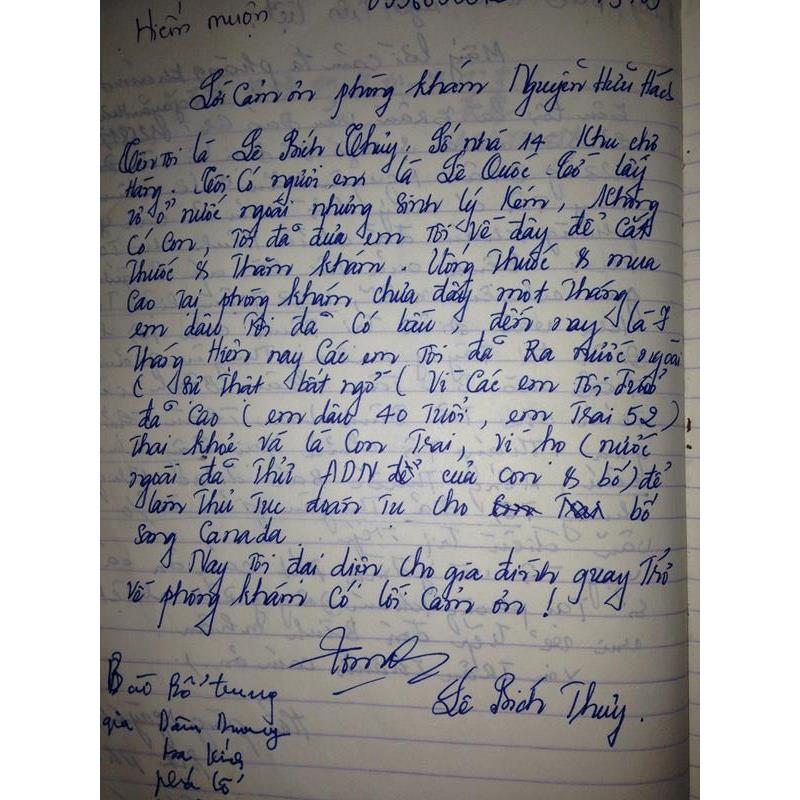 Hiếm muộn
Lời Cảm ơn phòng khám Nguyễn Hữu Hách
Tên Tôi là Lê Bích Thủy. Số nhà 14 Khu chở
Hàng. Tôi Có người em là Lê Quốc lấy
vợ ở nước ngoài nhưng Sinh lý Kém, không
Có Con, Tôi đã đưa em Tôi về đây để Cắt
Thuốc & Thăm khám. Uống Thuốc & mua
Cao Tại phòng khám chưa đầy một Tháng
em dâu Tôi đã Có bầu, đến nay là 7
Tháng Hiện nay Các em Tôi đã Ra nước ngoài
( sự Thật bất ngờ ( Vì Các em Tôi Tuổi
đã Cao ( em dâu 40 Tuổi, em Trai 52)
Thai khoẻ và là Con Trai, Vì họ (nước
ngoài đã Thử ADN để của con & bố) để
làm Thủ Tục đoàn Tụ cho bố
sang Canada.
Nay Tôi đại diện cho gia đình quay Trở
về phòng khám Có lời Cảm ơn !
Lê Bích Thủy.
Bào Bổ trung
gia Dâm Dương